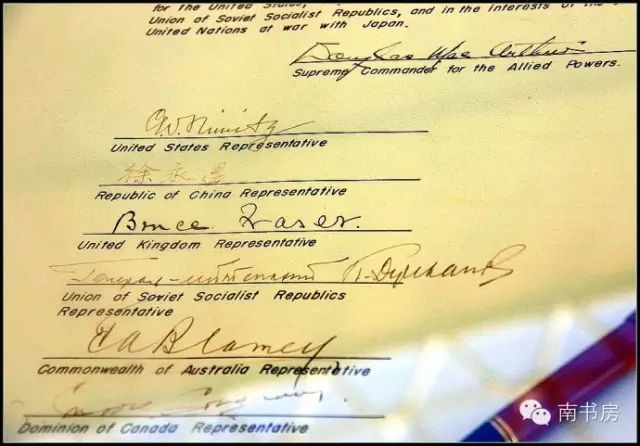 for the United States,
Union of Soviet Socialist Republics, and in the interests of the
United Nations at war with Japan.
Douglas MacArthur
Supreme Commander for the Allied Powers.
C.W. Nimitz
United States Representative
徐永昌
Republic of China Representative
Bruce Fraser.
United Kingdom Representative
Union of Soviet Socialist Republics
Representative
T A Blamey
Commonwealth of Australia Representative
Dominion of Canada Representative
南书房